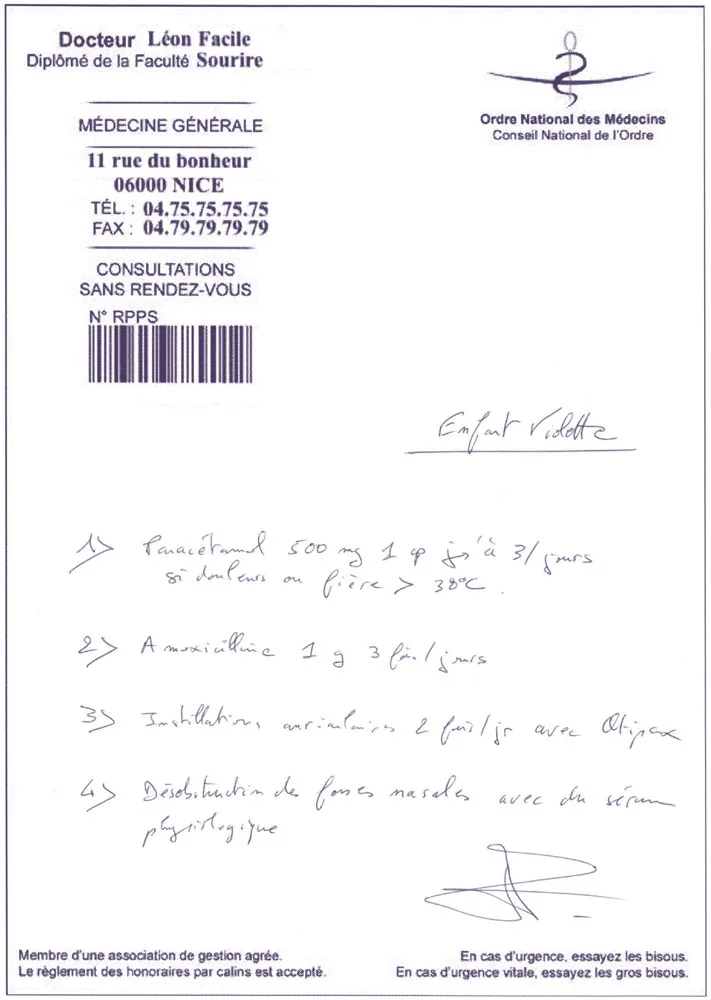 Docteur Léon Facile
Diplômé de la Faculté Sourire
MÉDECINE GÉNÉRALE
11 rue du bonheur
06000 NICE
TÉL. : 04.75.75.75.75
FAX : 04.79.79.79.79
CONSULTATIONS
SANS RENDEZ-VOUS
N° RPPS
Ordre National des Médecins
Conseil National de l'Ordre
Enfant Violette
1> Paracétamol 500 mg 1 cp jsq'à 3/jours
si douleurs ou fièvre > 38°C.
2> Amoxicilline 1 g 3 fois/jours
3> Instillations auriculaires 2 fois/jr avec Otipax
4> Désobstruction des fosses nasales avec du sérum
physiologique
Membre d'une association de gestion agrée.
Le règlement des honoraires par calins est accepté.
En cas d'urgence, essayez les bisous.
En cas d'urgence vitale, essayez les gros bisous.